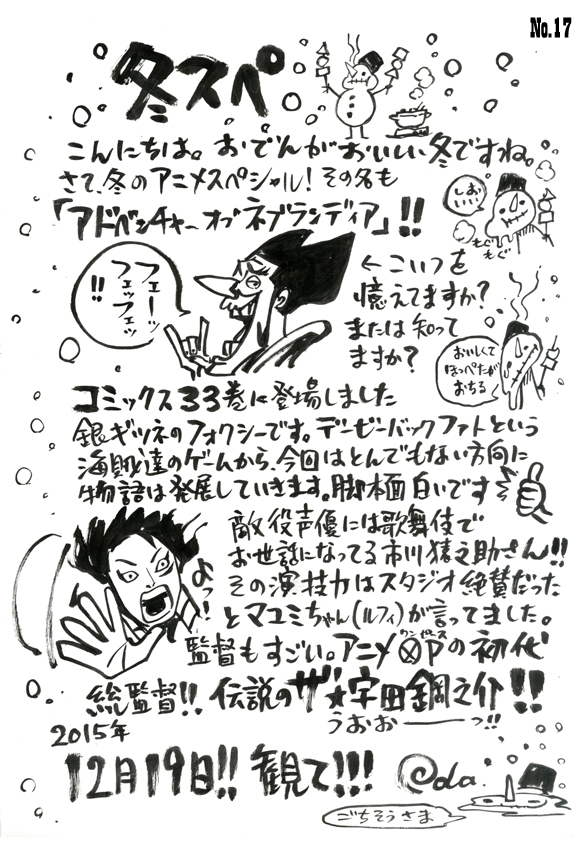 No.17
冬スペ
こんにちは。おでんがおいしい冬ですね。
さて、冬のアニメスペシャル!その名も
「アドベンチャーオブネブランディア」!!
しおいい
もぐもぐ
フェーッ
フェッフェッ
!!
←こいつを
憶えてますか?
または知って
ますか?
おいしくて
ほっぺたが
おちる
コミックス33巻に登場しました
銀ギツネのフォクシーです。デービーバックファイトという
海賊達のゲームから、今回はとんでもない方向に
物語は発展していきます。脚本面白いです
敵役声優には歌舞伎で
お世話になってる市川猿之助さん!!
その演技力はスタジオ絶賛だった
とマユミちゃん(ルフィ)が言ってました。
よっ!
監督もすごい。アニメⓍPの初代
ワンピース
総監督!!伝説のザ★宇田鋼之介!!
うおおーーっ!!
2015年
12月19日!!観て!!!
@da.
ごちそうさま